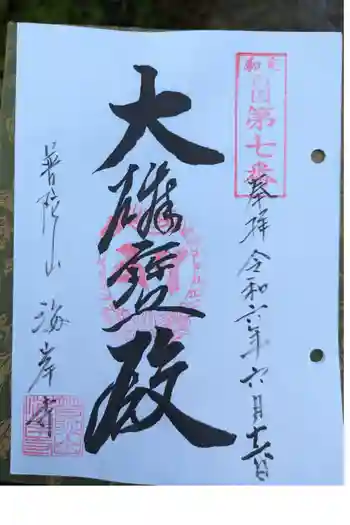 第七番
奉拝 令和六年六月十六日
大雄宝殿
普陀山 海岸寺